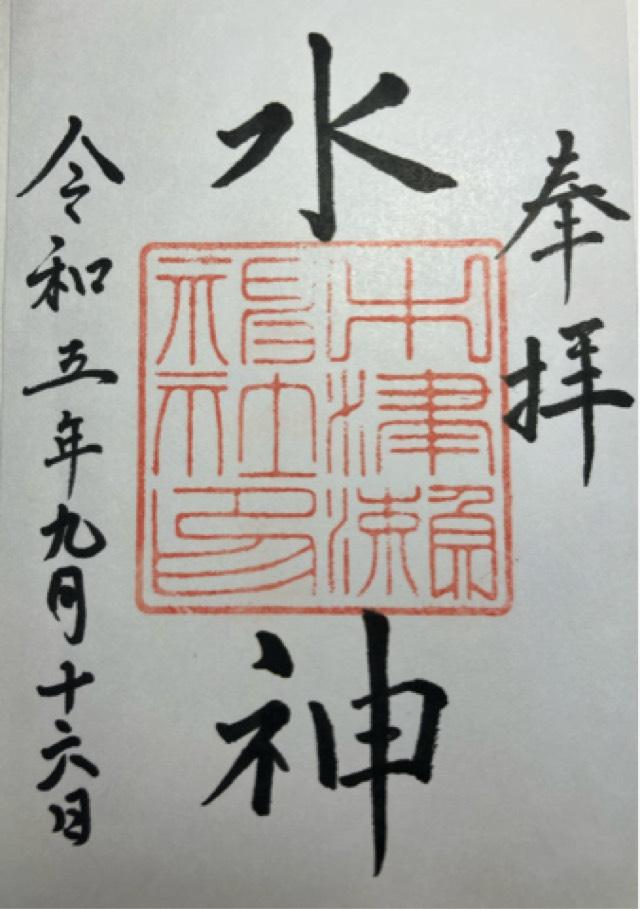 奉拝
水神
中津瀬
神社印
令和五年九月十六日